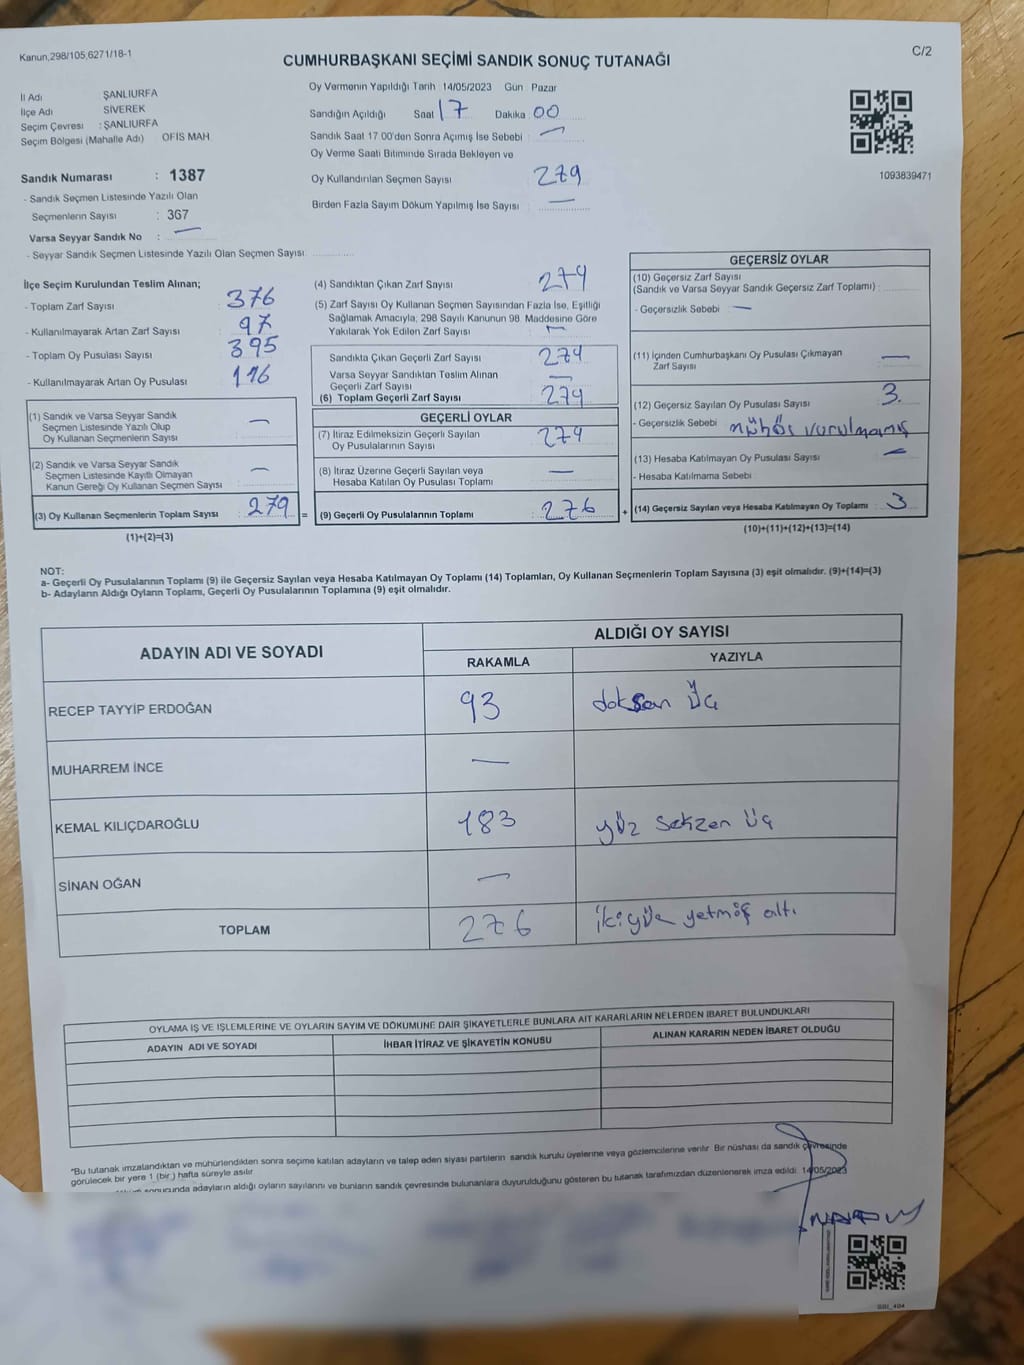 Kanun,298/105;6271/18-1
C/2
CUMHURBAŞKANI SEÇİMİ SANDIK SONUÇ TUTANAĞI
İl Adı ŞANLIURFA
İlçe Adı SİVEREK
Seçim Çevresi : ŞANLIURFA
Seçim Bölgesi (Mahalle Adı) OFİS MAH
Sandık Numarası : 1387
- Sandık Seçmen Listesinde Yazılı Olan
Seçmenlerin Sayısı : 367
Varsa Seyyar Sandık No : —
- Seyyar Sandık Seçmen Listesinde Yazılı Olan Seçmen Sayısı
Oy Vermenin Yapıldığı Tarih 14/05/2023 Gün Pazar
Sandığın Açıldığı Saat 17 Dakika 00
Sandık Saat 17.00'den Sonra Açımış İse Sebebi : —
Oy Verme Saati Bitiminde Sırada Bekleyen ve
Oy Kullandırılan Seçmen Sayısı 279
Birden Fazla Sayım Döküm Yapılmış İse Sayısı —
1093839471
İlçe Seçim Kurulundan Teslim Alınan;
- Toplam Zarf Sayısı 376
- Kullanılmayarak Artan Zarf Sayısı 97
- Toplam Oy Pusulası Sayısı 395
- Kullanılmayarak Artan Oy Pusulası 116
(1) Sandık ve Varsa Seyyar Sandık
Seçmen Listesinde Yazılı Olup
Oy Kullanan Seçmenlerin Sayısı —
(2) Sandık ve Varsa Seyyar Sandık
Seçmen Listesinde Kayıtlı Olmayan
Kanun Gereği Oy Kullanan Seçmen Sayısı —
(3) Oy Kullanan Seçmenlerin Toplam Sayısı : 279 =
(1)+(2)=(3)
(4) Sandıktan Çıkan Zarf Sayısı 279
(5) Zarf Sayısı Oy Kullanan Seçmen Sayısından Fazla İse, Eşitliği
Sağlamak Amacıyla; 298 Sayılı Kanunun 98. Maddesine Göre
Yakılarak Yok Edilen Zarf Sayısı —
Sandıkta Çıkan Geçerli Zarf Sayısı 279
Varsa Seyyar Sandıktan Teslim Alınan
Geçerli Zarf Sayısı —
(6) Toplam Geçerli Zarf Sayısı 279
GEÇERLİ OYLAR
(7) İtiraz Edilmeksizin Geçerli Sayılan
Oy Pusulasının Sayısı 279
(8) İtiraz Üzerine Geçerli Sayılan veya
Hesaba Katılan Oy Pusulası Toplamı —
(9) Geçerli Oy Pusulalarının Toplamı : 276 +
GEÇERSİZ OYLAR
(10) Geçersiz Zarf Sayısı
(Sandık ve Varsa Seyyar Sandık Geçersiz Zarf Toplamı) :
- Geçersizlik Sebebi —
(11) İçinden Cumhurbaşkanı Oy Pusulası Çıkmayan
Zarf Sayısı —
(12) Geçersiz Sayılan Oy Pusulası Sayısı 3.
- Geçersizlik Sebebi mühür vurulmamış
(13) Hesaba Katılmayan Oy Pusulası Sayısı —
- Hesaba Katılmama Sebebi
(14) Geçersiz Sayılan veya Hesaba Katılmayan Oy Toplamı : 3
(10)+(11)+(12)+(13)=(14)
NOT:
a- Geçerli Oy Pusulalarının Toplamı (9) ile Geçersiz Sayılan veya Hesaba Katılmayan Oy Toplamı (14) Toplamları, Oy Kullanan Seçmenlerin Toplam Sayısına (3) eşit olmalıdır. (9)+(14)=(3)
b- Adayların Aldığı Oyların Toplamı, Geçerli Oy Pusulalarının Toplamına (9) eşit olmalıdır.
ADAYIN ADI VE SOYADI
ALDIĞI OY SAYISI
RAKAMLA YAZIYLA
RECEP TAYYİP ERDOĞAN 93 doksan üç
MUHARREM İNCE —
KEMAL KILIÇDAROĞLU 183 yüz seksen üç
SİNAN OĞAN —
TOPLAM 276 ikiyüz yetmiş altı
OYLAMA İŞ VE İŞLEMLERİNE VE OYLARIN SAYIM VE DÖKÜMÜNE DAİR ŞİKAYETLERLE BUNLARA AİT KARARLARIN NELERDEN İBARET BULUNDUKLARI
ADAYIN ADI VE SOYADI İHBAR İTİRAZ VE ŞİKAYETİN KONUSU ALINAN KARARIN NEDEN İBARET OLDUĞU
"Bu tutanak imzalandıktan ve mühürlendikten sonra seçime katılan adayların ve talep eden siyasi partilerin sandık kurulu üyelerine veya gözlemcilerine verilir. Bir nüshası da sandık çevresinde
görülecek bir yere 1 (bir) hafta süreyle asılır
sonucunda adayların aldığı oyların sayılarını ve bunların sandık çevresinde bulunanlara duyurulduğunu gösteren bu tutanak tarafımızdan düzenlenerek imza edildi. 14/05/2023